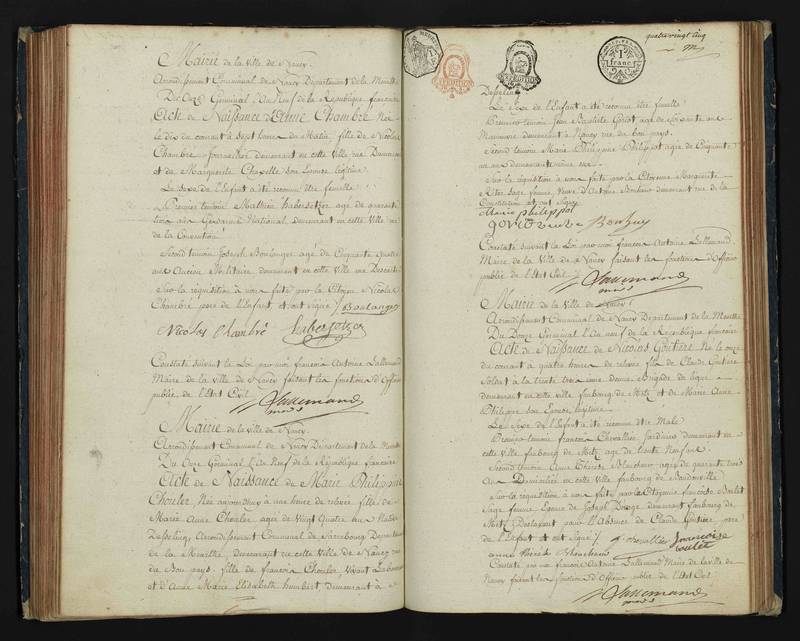 Mairie de la Ville de Nancy.
Arrondissement Communal de Nancy Département de la Meurthe
Du Onze Germinal l'An Neuf de la République française
Acte de Naissance d'Anne Chambré Née
le dix du courant à sept heures du Matin, fille de Nicolas
Chambré Journallier demeurant en cette Ville rue
et de Marguerite Chapelle son Epouse légitime
Le Sexe de l'Enfant a été reconnu être femelle
Premier temoin Mathieu habersetzer agé de quarante
ans Gendarme National demeurant en cette Ville rue
de la Convention
Second temoin Joseph Boulanger agé de Cinquante quatre
ans Ancien Militaire demeurant en cette Ville rue
Sur la réquisition à nous faite par le Citoyen Nicolas
Chambré pere de l'Enfant, et ont signé / Boulanger
Nicolas Chambré habersetzer
Constaté suivant la Loi par moi françois Antoine Lallemand
Maire de la Ville de Nancy faisant les fonctions d'Officier
public, de l'Etat Civil / Lallemand
Mairie de la Ville de Nancy.
Arrondissement Communal de Nancy Département de la Meurthe
Du Onze Germinal l'An Neuf de la République française
Acte de Naissance de Marie Philippine
Chouler, Née aujourd'huy à une heure de relevée fille de
Marie Anne Chouler, agée de Vingt Quatre ans Native
Arrondissement Communal de Sarrebourg Département
de la Meurthe, demeurant en cette Ville de Nancy rue
du Bon pays, fille de françois Chouler, vivant
et d'Anne Marie Elisabeth humbert, demeurant à
quatre vingt
1 franc
Le Sexe de l'Enfant a été reconnu être femelle
Premier temoin Jean Baptiste Goriot agé de Soixante ans
demeurant à Nancy rue du bon pays.
Second temoin Marie Philippine Philippot agée de Cinquante
ans demeurante même rue
Sur la réquisition à nous faite par la Citoyenne Marguerite
sage femme, Veuve d'Antoine demeurant rue de la
Constitution et ont signé
Marie philippot
Constaté suivant la Loi par moi françois Antoine Lallemand
Maire de la Ville de Nancy faisant les fonctions d'Officier
public de l'Etat Civil / Lallemand
Mairie de la Ville de Nancy.
Arrondissement Communal de Nancy Département de la Meurthe
Du Douze Germinal l'An neuf de la République française
Acte de Naissance de Nicolas Goutiere Né le onze
du courant à quatre heures de relevée fils de Claude Goutiere
Soldat à la trente demi Brigade de ligne
demeurant en cette Ville faubourg de Metz et de Marie Anne
Philippe son Epouse légitime
Le Sexe de l'Enfant a été reconnu être Male
Premier temoin françois Chevallier Jardinier demeurant en
cette Ville faubourg de Metz, agé de trente Neuf ans
Second temoin Anne Therese agée de quarante trois
ans domiciliée en cette Ville faubourg de
Sur la réquisition à nous faite par la Citoyenne françoise
Sage femme Epouse de Joseph demeurant faubourg de
Metz pour l'Absence de Claude Goutiere pere
de l'Enfant et ont signé /
françoise
Constaté par moi françois Antoine Lallemand Maire de la Ville de
Nancy faisant les fonctions d'Officier public de l'Etat Civil
Lallemand